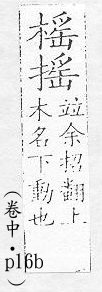 榣搖
竝余招翻上
木名下動也
(卷中·
p16b